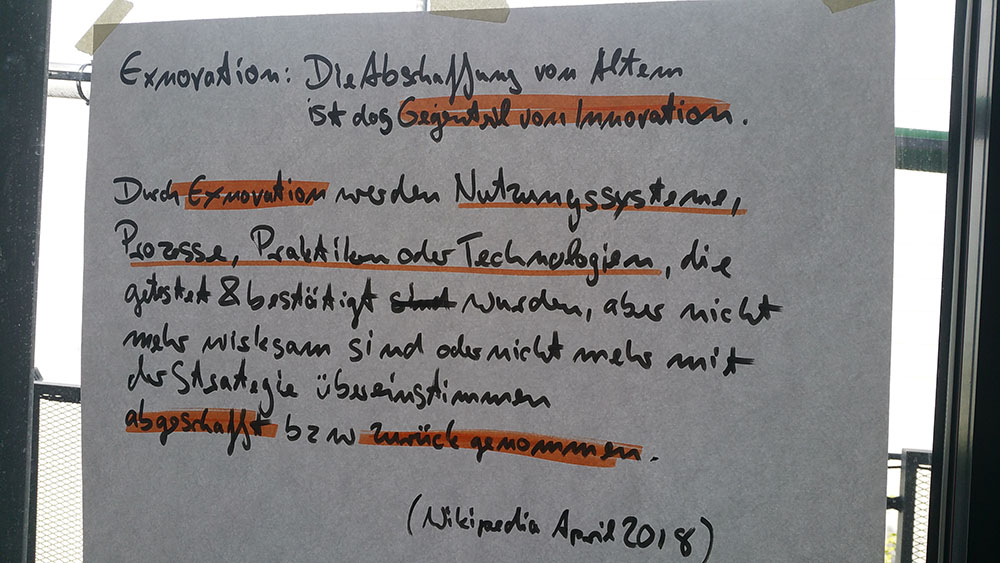 Exnovation: Die Abschaffung von Altem
ist das Gegenteil von Innovation.
Durch Exnovation werden Nutzungssysteme,
Prozesse, Praktiken oder Technologien, die
getestet & bestätigt sind wurden, aber nicht
mehr wirksam sind oder nicht mehr mit
der Strategie übereinstimmen
abgeschafft bzw zurückgenommen.
(Wikipedia April 2018)